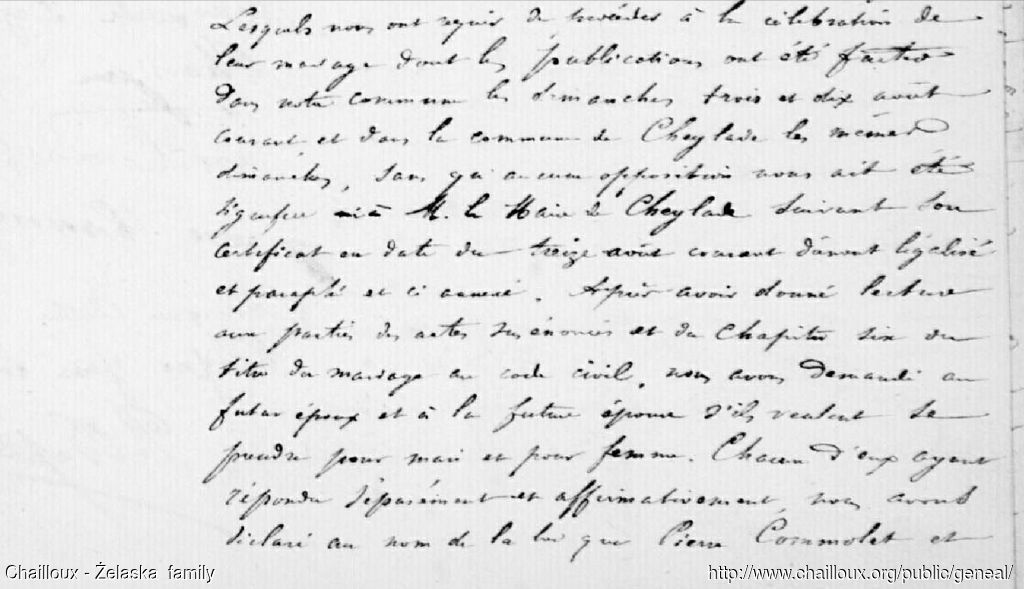 Lesquels nous ont requis de procéder à la célébration de
leur mariage dont les publications ont été faites
dans notre commune les dimanches trois et dix août
courant et dans la commune de Cheylade les mêmes
dimanches, sans qu'aucune opposition nous ait été
signifiée ni à M. le Maire de Cheylade suivant son
certificat en date du treize août courant dûment légalisé
et paraphé et ci annexé. Après avoir donné lecture
aux parties des actes susénoncés et du Chapitre six du
titre du mariage au code civil, nous avons demandé au
futur époux et à la future épouse s'ils veulent se
prendre pour mari et pour femme. Chacun d'eux ayant
répondu séparément et affirmativement, nous avons
déclaré au nom de la loi que Pierre Commolet et
Chailloux - Żelaska family
http://www.chailloux.org/public/geneal/